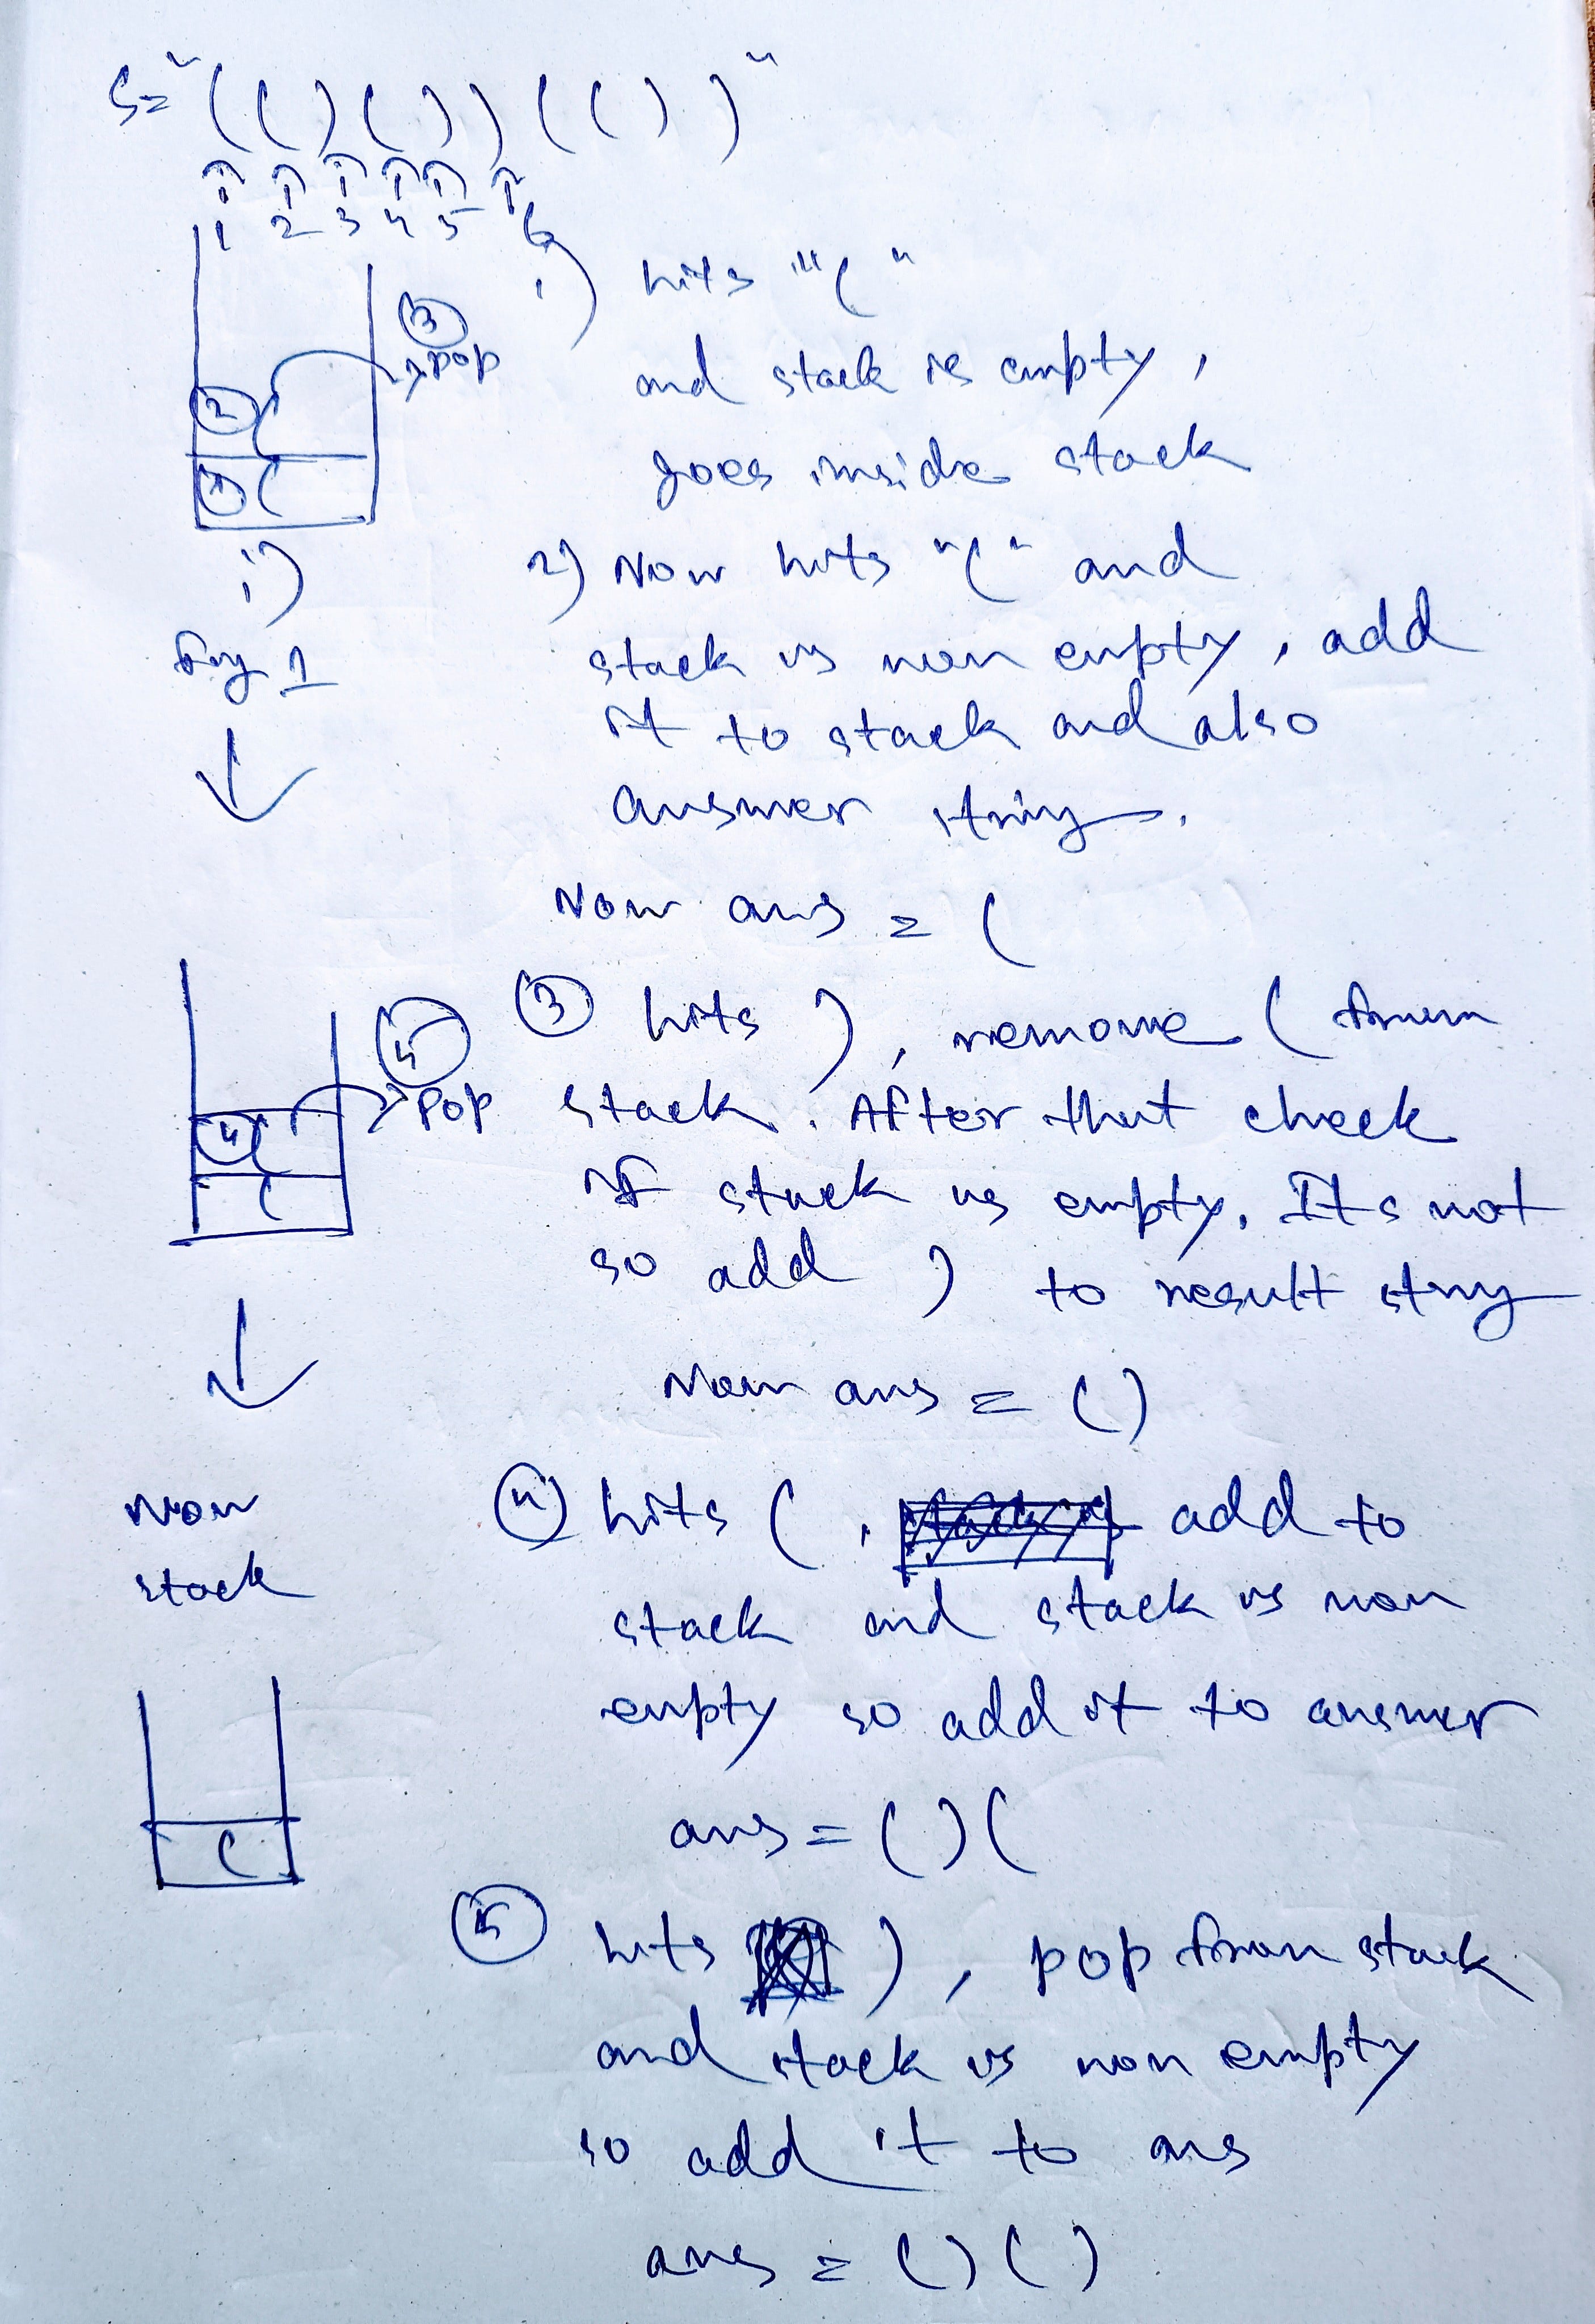 S = "(()())(())"
1 2 3 4 5 6
1) hits "("
and stack is empty,
goes inside stack
3
pop
2 (
1 (
i)
fig 1
2) Now hits "(" and
stack is non empty, add
it to stack and also
answer string.
Now ans = (
3 hits ), remove ( from
stack. After that check
if stack is empty. Its not
so add ) to result string
Now ans = ()
5
pop
4 (
(
4 hits ( , add to
stack and stack is non
empty so add it to answer
ans = ()(
Now
stack
(
5 hits ) , pop from stack
and stack is non empty
so add it to ans
ans = ()()